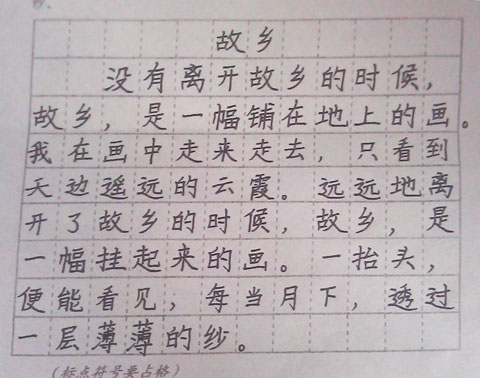 故乡
没有离开故乡的时候，
故乡，是一幅铺在地上的画。
我在画中走来走去，只看到
天边遥远的云霞。远远地离
开了故乡的时候，故乡，是
一幅挂起来的画。一抬头，
便能看见，每当月下，透过
一层薄薄的纱。
（标点符号要占格）